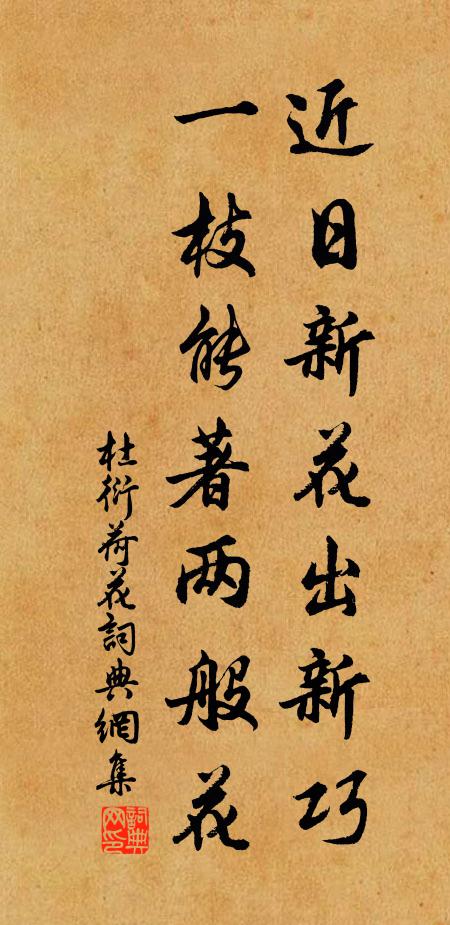 近日新花出新巧
一枝能著两般花
杜衍荷花詞典網集
詞典网印